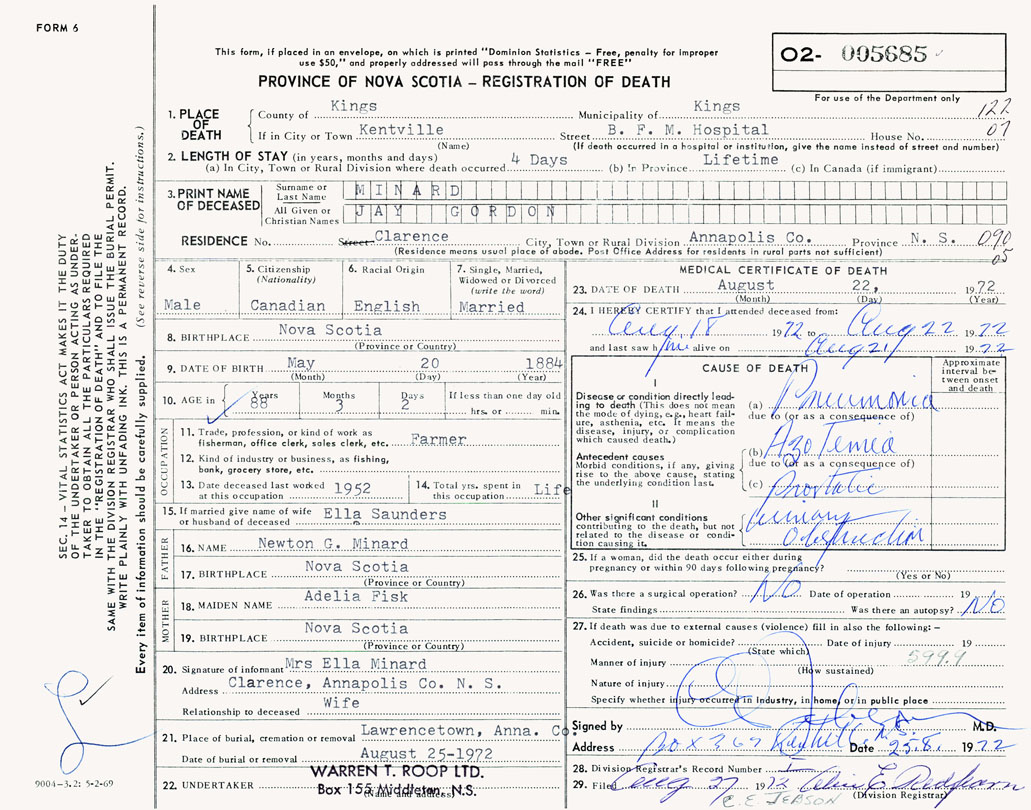 FORM 6
This form, if placed in an envelope, on which is printed "Dominion Statistics – Free, penalty for improper
use $50," and properly addressed will pass through the mail "FREE"
PROVINCE OF NOVA SCOTIA – REGISTRATION OF DEATH
02- 005685
For use of the Department only
1. PLACE OF DEATH
County of Kings Municipality of Kings 122
If in City or Town Kentville Street B. F. M. Hospital House No. 07
(Name) (If death occurred in a hospital or institution, give the name instead of street and number)
2. LENGTH OF STAY (in years, months and days)
(a) In City, Town or Rural Division where death occurred 4 Days (b) in Province Lifetime (c) In Canada (if immigrant)
3. PRINT NAME OF DECEASED
Surname or Last Name MINARD
All Given or Christian Names JAY GORDON
RESIDENCE No. Street Clarence City, Town or Rural Division Annapolis Co. Province N. S. 090
(Residence means usual place of abode. Post Office Address for residents in rural parts not sufficient) 05
4. Sex
Male
5. Citizenship
(Nationality)
Canadian
6. Racial Origin
English
7. Single, Married,
Widowed or Divorced
(write the word)
Married
8. BIRTHPLACE Nova Scotia
(Province or Country)
9. DATE OF BIRTH May 20 1884
(Month) (Day) (Year)
10. AGE in Years Months Days If less than one day old
88 3 2 hrs. or min.
OCCUPATION
11. Trade, profession, or kind of work as
fisherman, office clerk, sales clerk, etc. Farmer
12. Kind of industry or business, as fishing,
bank, grocery store, etc.
13. Date deceased last worked
at this occupation 1952
14. Total yrs. spent in
this occupation Life
15. If married give name of wife
or husband of deceased Ella Saunders
FATHER
16. NAME Newton G. Minard
17. BIRTHPLACE Nova Scotia
(Province or Country)
MOTHER
18. MAIDEN NAME Adelia Fisk
19. BIRTHPLACE Nova Scotia
(Province or Country)
20. Signature of informant Mrs Ella Minard
Address Clarence, Annapolis Co. N. S.
Relationship to deceased Wife
21. Place of burial, cremation or removal Lawrencetown, Anna. Co.
Date of burial or removal August 25-1972
22. UNDERTAKER WARREN T. ROOP LTD.
Box 155 Middleton, N.S.
(Name and address)
MEDICAL CERTIFICATE OF DEATH
23. DATE OF DEATH August 22, 1972
(Month) (Day) (Year)
24. I HEREBY CERTIFY that I attended deceased from:
Aug 18 1972 to Aug 22 1972
and last saw him alive on Aug 21 1972
CAUSE OF DEATH
Approximate
interval be-
tween onset
and death
I
Disease or condition directly lead-
ing to death (This does not mean
the mode of dying, e.g., heart fail-
ure, asthenia, etc. It means the
disease, injury, or complication
which caused death.)
(a) Pneumonia
due to (or as a consequence of)
Antecedent causes
Morbid conditions, if any, giving
rise to the above cause, stating
the underlying condition last.
(b) Azotemia
due to (or as a consequence of)
(c) Prostatic
II
Other significant conditions
contributing to the death, but not
related to the disease or condi-
tion causing it.
urinary
obstruction
25. If a woman, did the death occur either during
pregnancy or within 90 days following pregnancy?
(Yes or No)
26. Was there a surgical operation? NO Date of operation 19
State findings Was there an autopsy? NO
27. If death was due to external causes (violence) fill in also the following: –
Accident, suicide or homicide? Date of injury 19
(State which)
Manner of injury 599.9
(How sustained)
Nature of injury
Specify whether injury occurred in industry, in home, or in public place
Signed by M.D.
Address Box 369 N.S. Date 25.8. 1972
28. Division Registrar's Record Number
29. Filed Aug 27 1972
(Division Registrar)
SEC. 14 – VITAL STATISTICS ACT MAKES IT THE DUTY
OF THE UNDERTAKER OR PERSON ACTING AS UNDER-
TAKER TO OBTAIN ALL THE PARTICULARS REQUIRED
IN THE "REGISTRATION OF DEATH" AND TO FILE THE
SAME WITH THE DIVISION REGISTRAR WHO SHALL ISSUE THE BURIAL PERMIT.
WRITE PLAINLY WITH UNFADING INK. THIS IS A PERMANENT RECORD.
Every item of information should be carefully supplied. (See reverse side for instructions.)
9004-3.2: 5-2-69